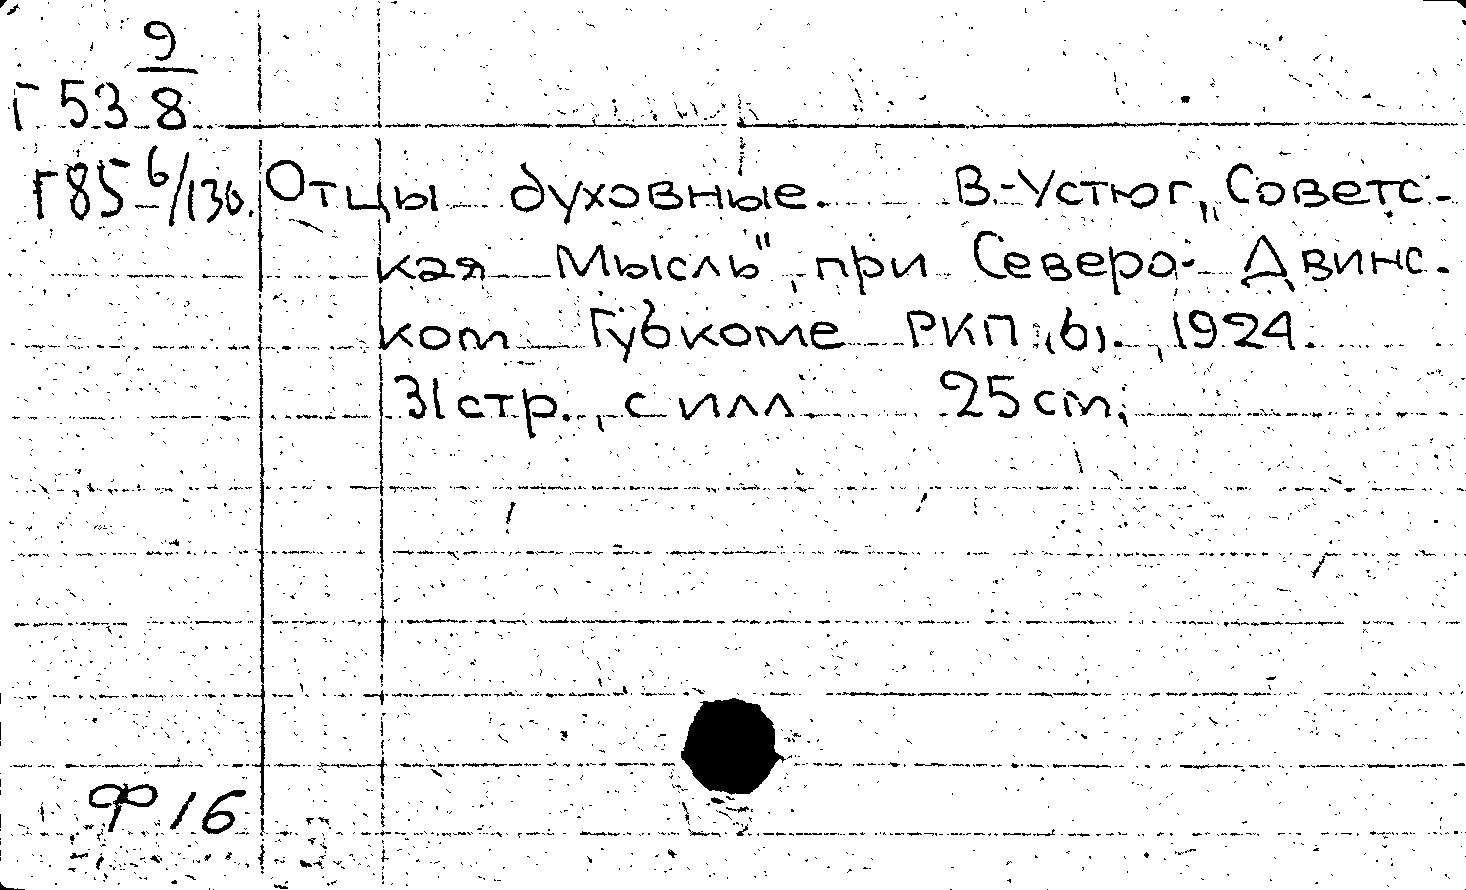 Г 53 9/8
Г 85 6/130. Отцы духовные. В.-Устюг, „Советс-
кая Мысль", при Северо- Двинс.
ком Губкоме РКП (б). , 1924.
31 стр. , с илл 25 cm.
Ф 16